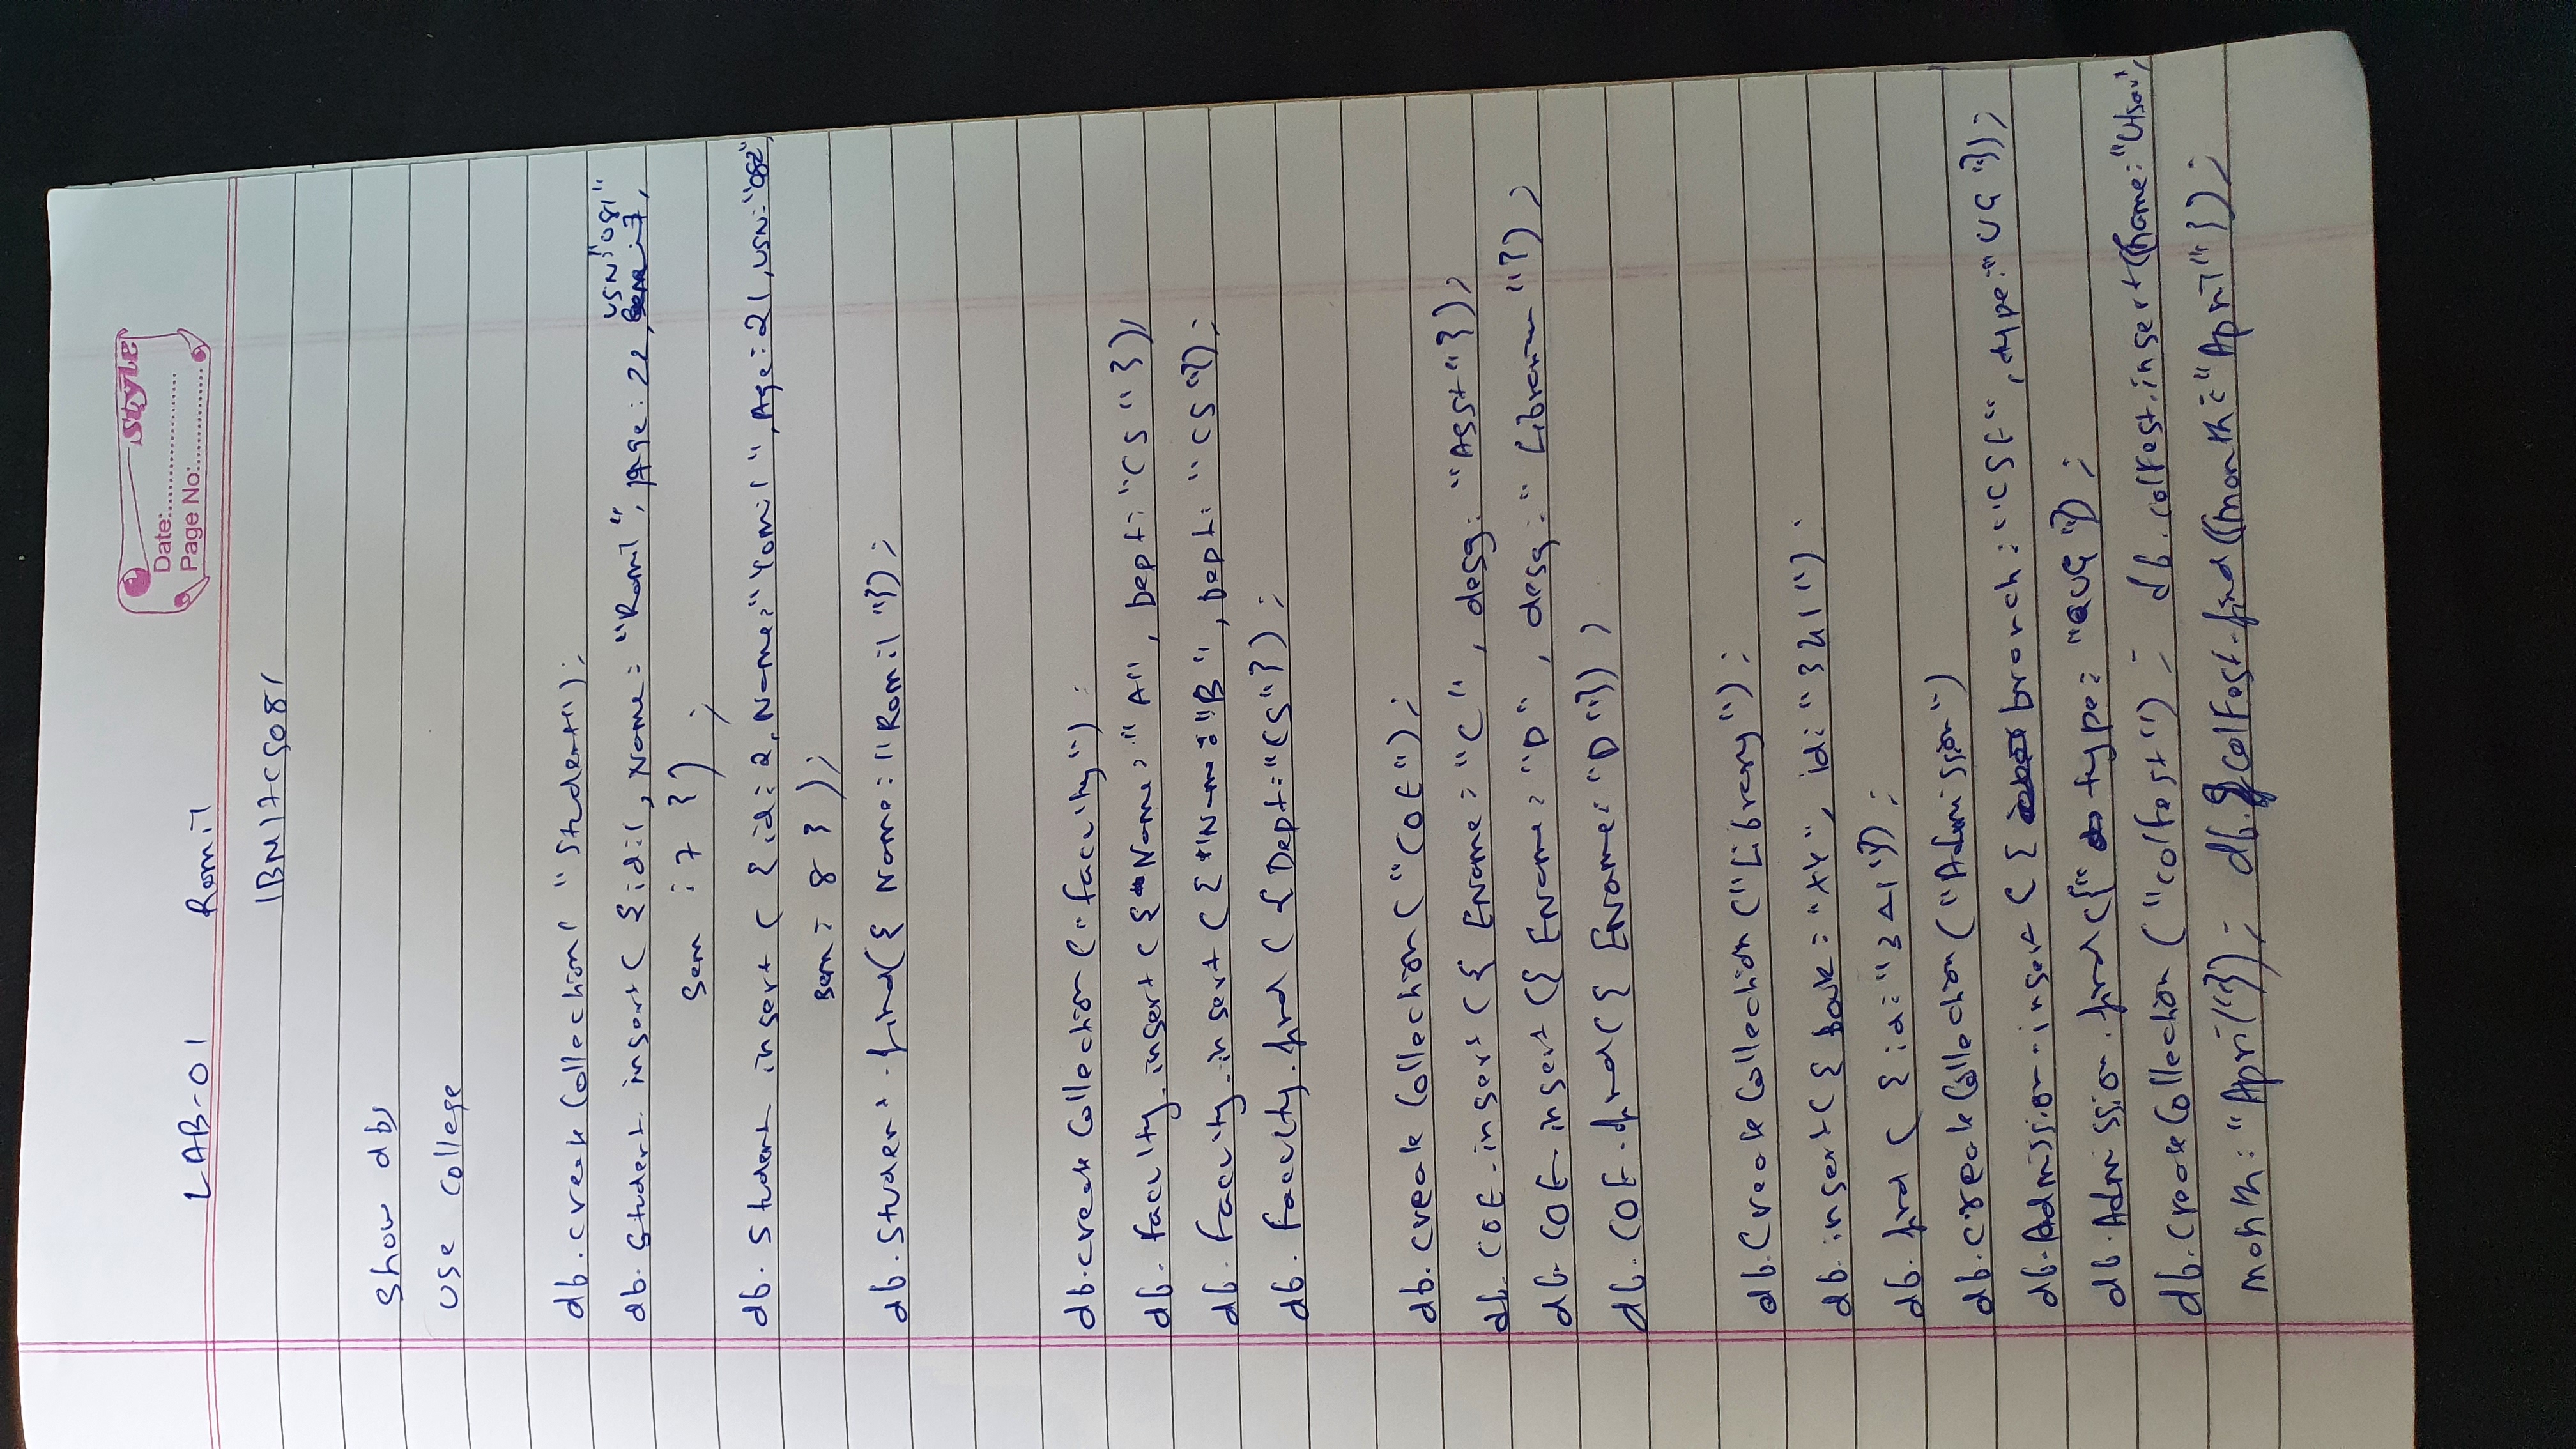 style
Date:......................
Page No:................
LAB-01 Romil
1BM17CS081
show dbs
use college
db.createCollection( "Student");
USN:"081"
db.Student.insert( {id:1, Name: "Romil", Age: 22,
Sem : 7 });
db.Student insert ( {id: 2, Name: "Yomil", Age: 21, USN: "082",
Sem: 8 });
db.Student.find({ Name: "Romil"});
db.createCollection("faculty");
db.faculty.insert({ Name: "A", Dept: "CS"});
db.faculty.insert({ Name: "B", Dept: "CS"});
db.faculty.find({Dept: "CS"});
db.createCollection("COE");
db.COE.insert({ EName: "C", desg: "Asst"});
db.COE.insert({ EName: "D", desg: "Librarian"});
db.COE.find({ EName: "D"});
db.CreateCollection("Library");
db.insert({ book: "XY", id: "321")
db.find({id: "321"});
db.createCollection("Admission")
db.Admission.insert({ branch: "CSE", type: "UG"});
db.Admission.find({" type: "UG"});
db.createCollection("colfest"); db.colfest.insert({name: "Utsav",
month: "April"}); db.colFest.find({month: "April"});